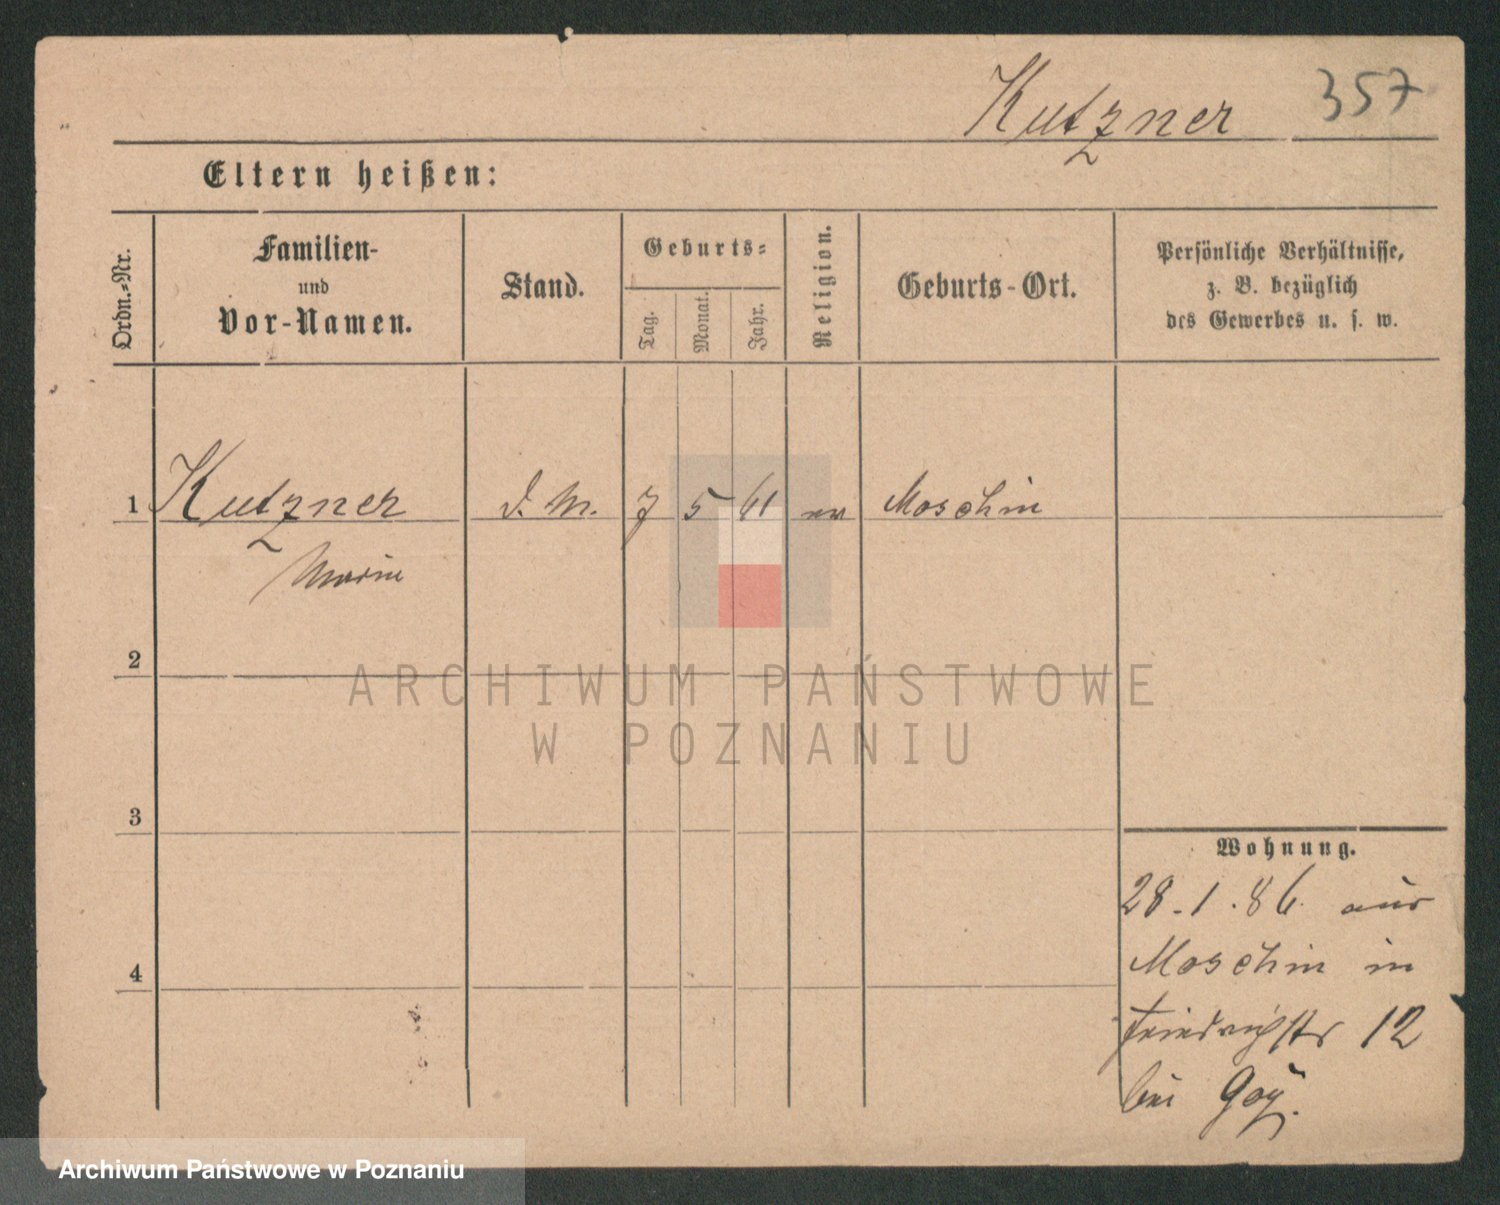 Kutzner 357
Eltern heißen:
Ordn.-Nr.
Familien-
und
Vor-Namen.
Stand.
Geburts-
Tag.
Monat.
Jahr.
Religion.
Geburts-Ort.
Persönliche Verhältnisse,
z. B. bezüglich
des Gewerbes u. s. w.
1 Kutzner d. M. 7 5 61 ev Moschin
Marie
2
ARCHIWUM PAŃSTWOWE
W POZNANIU
3
Wohnung.
28.1.86. aus
Moschin in
4
Friedrichstr 12
bei
Archiwum Państwowe w Poznaniu